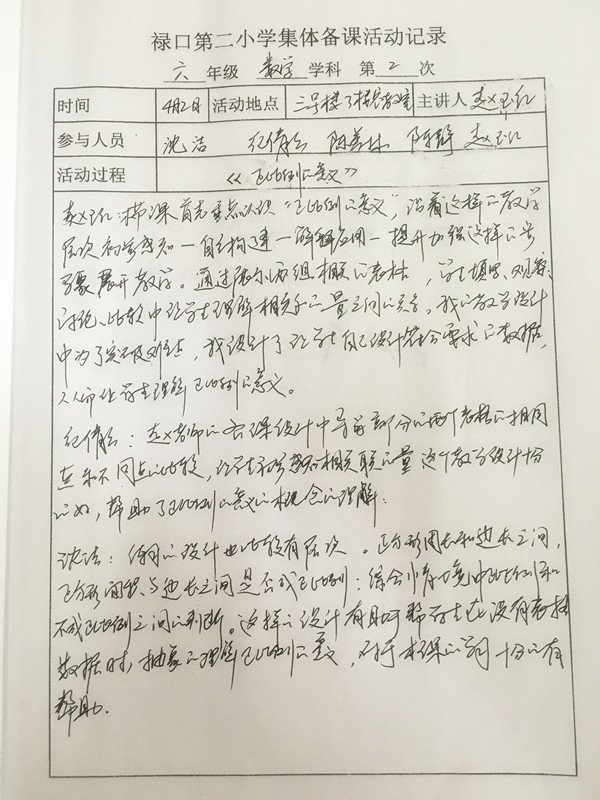 禄口第二小学集体备课活动记录
六 年级 数学 学科 第 2 次
时间 4月2日 活动地点 三号楼 多教室 主讲人 赵玉红
参与人员 沈洁 纪倩 陈 陈静 赵玉红
活动过程 《正比例的意义》
赵玉红:本节课首先重点认识“正比例的意义”,沿着这样的教学
层次初步感知—自主构建—解释应用—提升加强这样的步
骤展开教学。通过展示两组相关的表格,学生填写、观察、
讨论、比较中让学生理解相关的量之间的关系。我的教学设计
中为了突破难点,我设计了让学生自己设计符合要求的数据,
从而让学生理解正比例的意义。
纪倩:赵老师的备课设计中导学部分的两个表格的相同
点和不同点的比较,让学生初步感知相关联的量这个教学设计十分
的好,帮助了正比例的意义的概念的理解。
沈洁:练习的设计也比较有层次。正方形周长和边长之间,
正方形面积与边长之间是否成正比例;综合情境中正比例和
不成正比例之间的判断。这样的设计有助于帮学生在没有表格
数据时,抽象的理解正比例的意义,对于本课的学习十分的有
帮助。